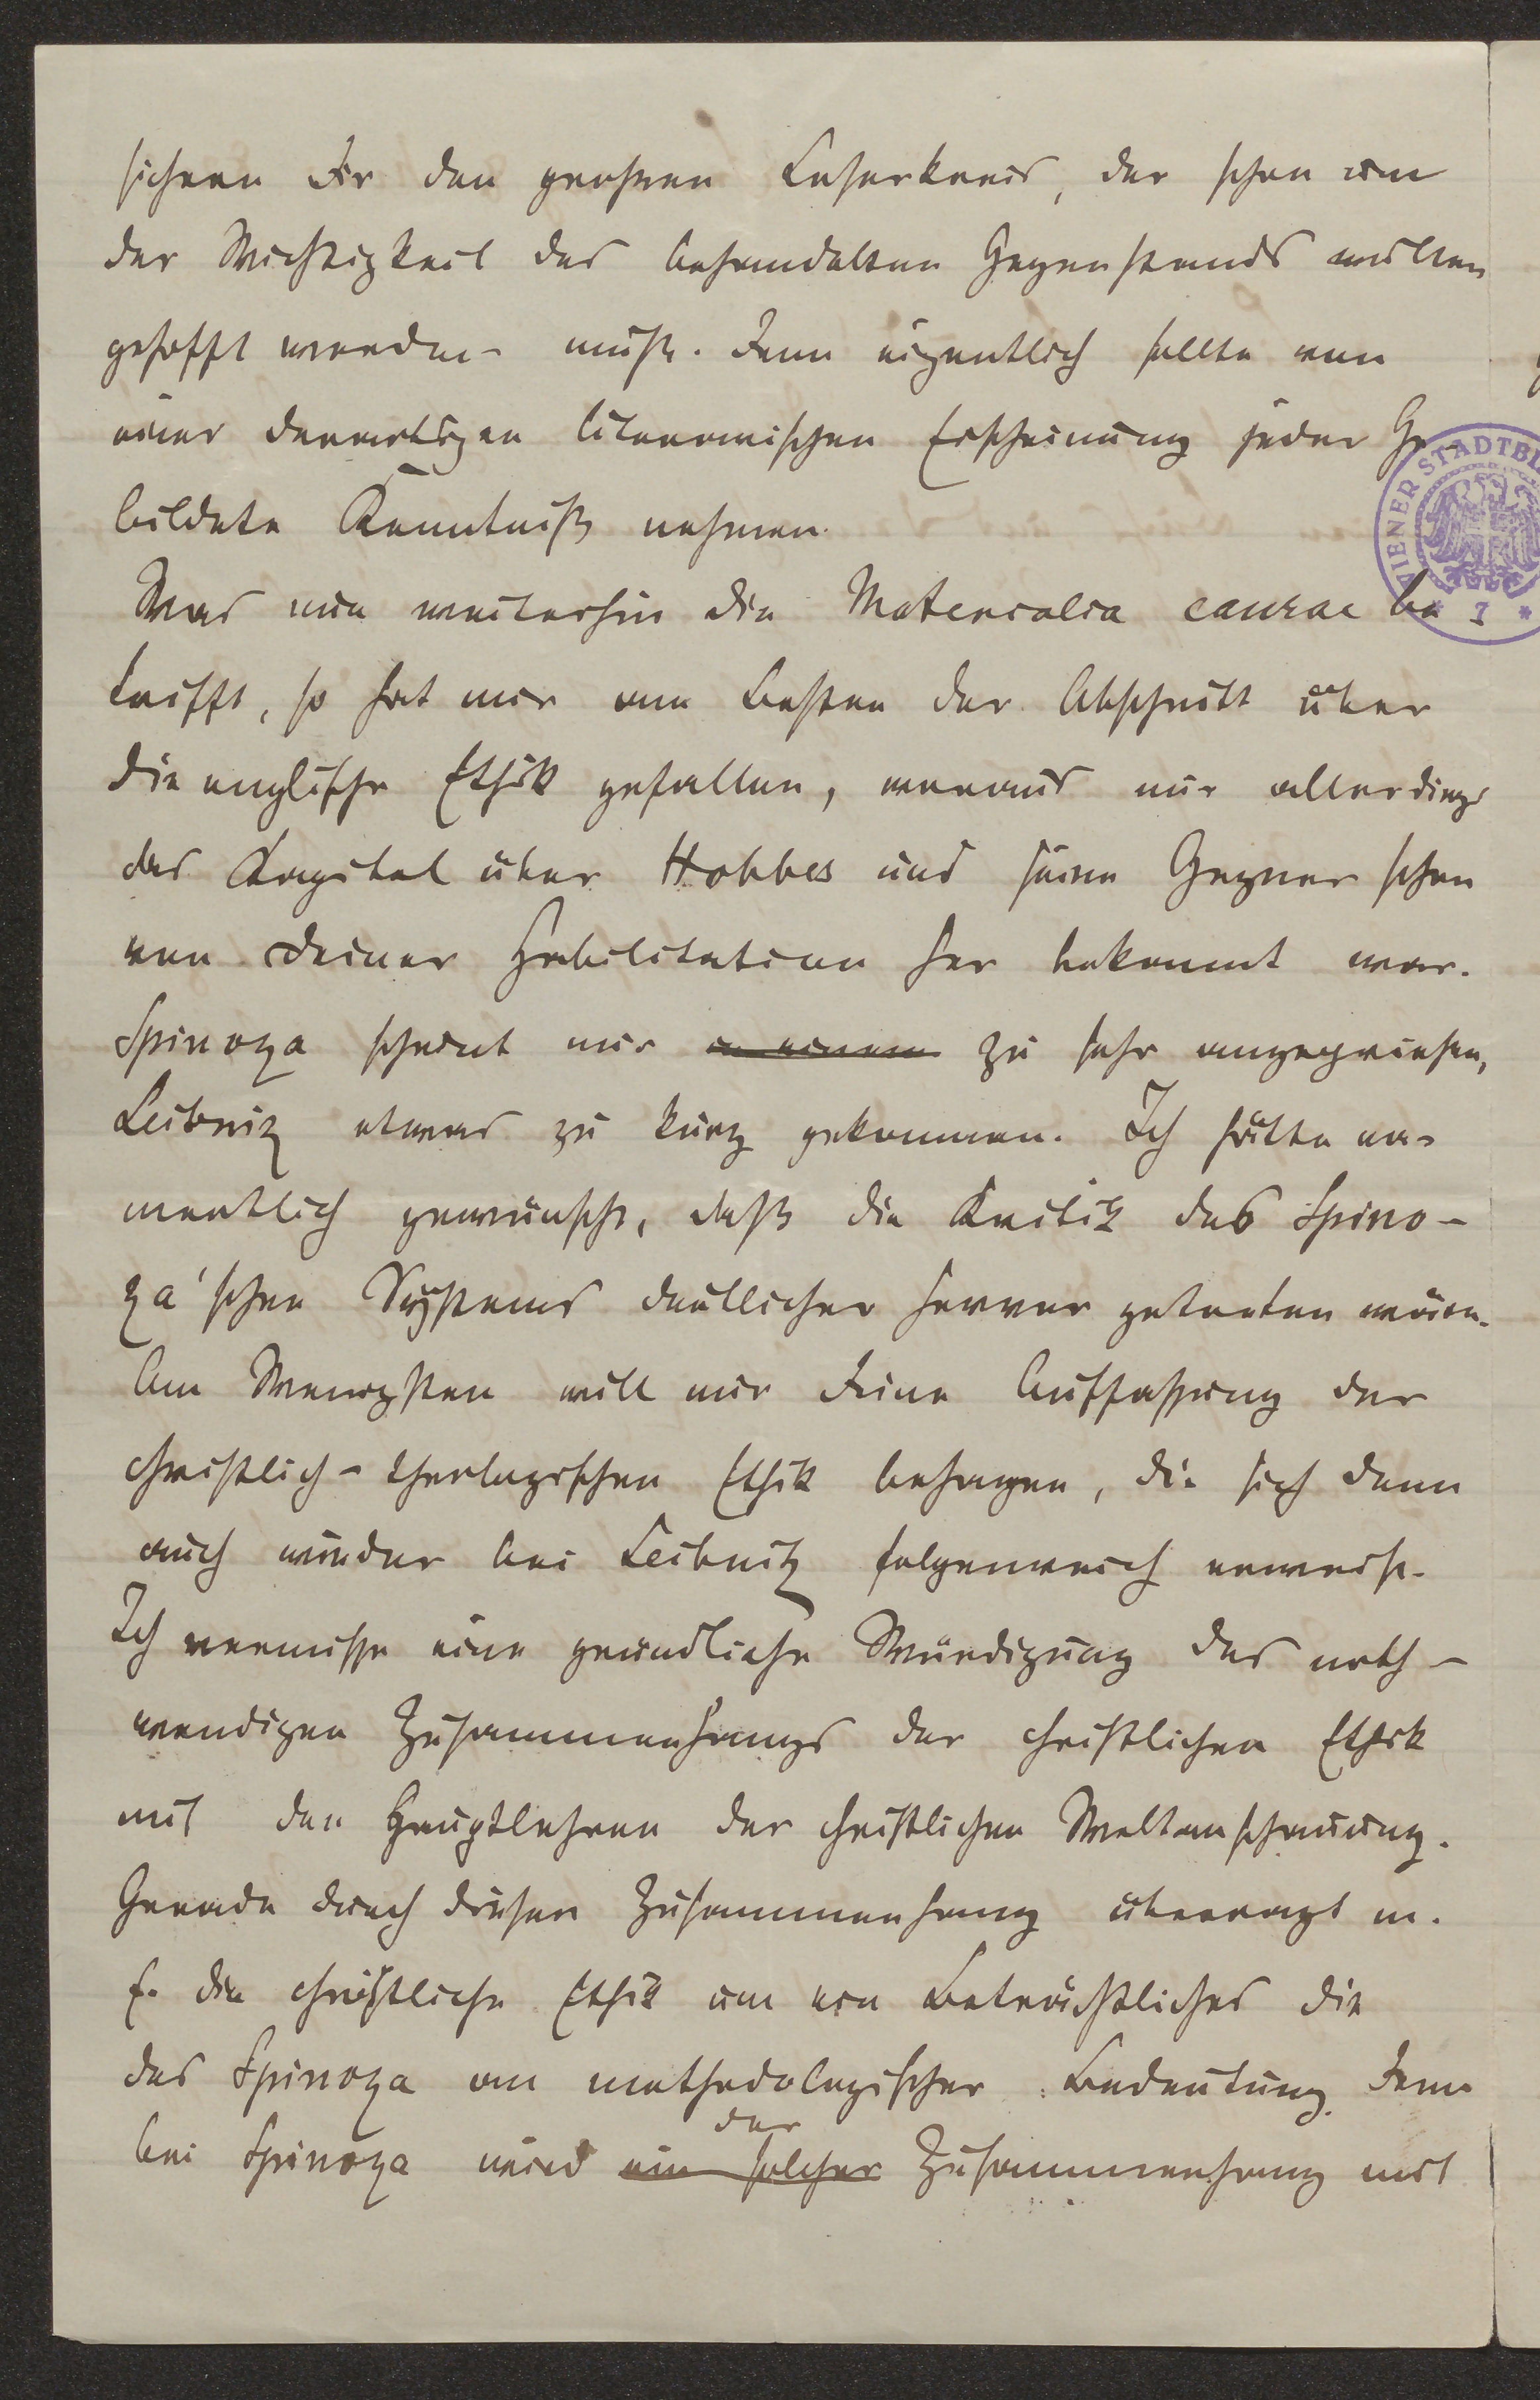 sichern Dir den großen Leserkreis, der schon um
der Wichtigkeit des behandelten Gegenstands willen
gehofft werden muß. Denn eigentlich sollte von
einer derartigen literarischen Erscheinung jeder Ge-
bildete Kenntniß nehmen.
Was nun weiterhin die Materialia causae be
trifft, so hat mir am Besten der Abschnitt über
die englische Ethik gefallen, woraus mir allerdings
das Kapitel über Hobbes und seine Gegner schon
von Deiner Habilitation her bekannt war.
Spinoza scheint mir zu sehr angepriesen,
Leibniz etwas zu kurz gekommen. Ich hätte na-
mentlich gewünscht, daß die Kritik des Spino-
za'schen Systems deutlicher hervor getreten wäre.
Am Wenigsten will mir Deine Auffassung der
christlich-theologischen Ethik behagen, die sich dann
auch wieder bei Leibnitz folgenreich erweist.
Ich vermisse eine gründliche Würdigung des noth-
wendigen Zusammenhangs der christlichen Ethik
mit den Hauptlehren der christlichen Weltanschauung.
Gerade durch diesen Zusammenhang überragt m.
E. die christliche Ethik um ein Beträchtliches die
des Spinoza an methodologischer Bedeutung. Denn
bei Spinoza wird ein solcher der Zusammenhang mit
WIENER STADTBI
* I *